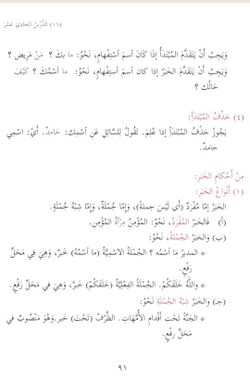 (١١) الدَّرْسُ الحَادِيَ عَشَرَ
وَيَجِبُ أَنْ يَتَقَدَّمَ المُبْتَدَأُ إِذَا كَانَ اسْمَ اسْتِفْهَامٍ، نَحْوُ: ما بكَ ؟ مَنْ مَرِيضٌ ؟
وَيَجِبُ أَنْ يَتَقَدَّمَ الخَبَرُ إِذَا كان اسمَ استِفْهامٍ، نَحْوُ: ما اسْمُكَ ؟ كَيْفَ
حَالُكَ ؟
(٤) حَذْفُ المُبْتَدَأِ:
يَجُوزُ حَذْفُ المُبْتَدَأِ إِذا عُلِمَ. تَقُولُ لِلسَّائِلِ عَنِ اسْمِكَ: حَامدٌ. أَيْ: اسْمِي
حامدٌ.
مِنْ أَحْكَامِ الخَبَرِ:
(١) أَنْوَاعُ الخَبَرِ:
الخَبَرُ إِمَّا مُفْرَدٌ (أَي لَيْسَ جملةً)، وَإِمَّا جُمْلَةٌ، وَإِمَّا شِبْهُ جُمْلَةٍ.
(أ) فالخَبَرُ المُفْرَدُ، نَحْوُ: المُؤْمِنُ مِرآةُ المُؤْمِنِ.
(ب) وَالخَبَرُ الجُمْلَةُ، نَحْوُ:
* المديرُ مَا اسْمُه ؟ الجُمْلَةُ الاسْمِيَّةُ (ما اسْمُهُ) خَبَرٌ، وَهِيَ فِي مَحَلِّ
رَفْعٍ.
* واللَّهُ خَلَقَكُمْ. الجُمْلَةُ الفِعْلِيَّةُ (خَلَقَكُمْ) خَبَرٌ، وَهِيَ فِي مَحَلِّ رَفْعٍ.
(جـ) والخبرُ شِبْهُ الجُمْلَةِ نَحْوُ:
* الجَنَّةُ تحتَ أَقدامِ الأُمَّهَاتِ. الظَّرْفُ (تَحْتَ) خبر .وَهُوَ مَنْصُوبٌ فِي
مَحَلِّ رَفْعٍ.
٩١